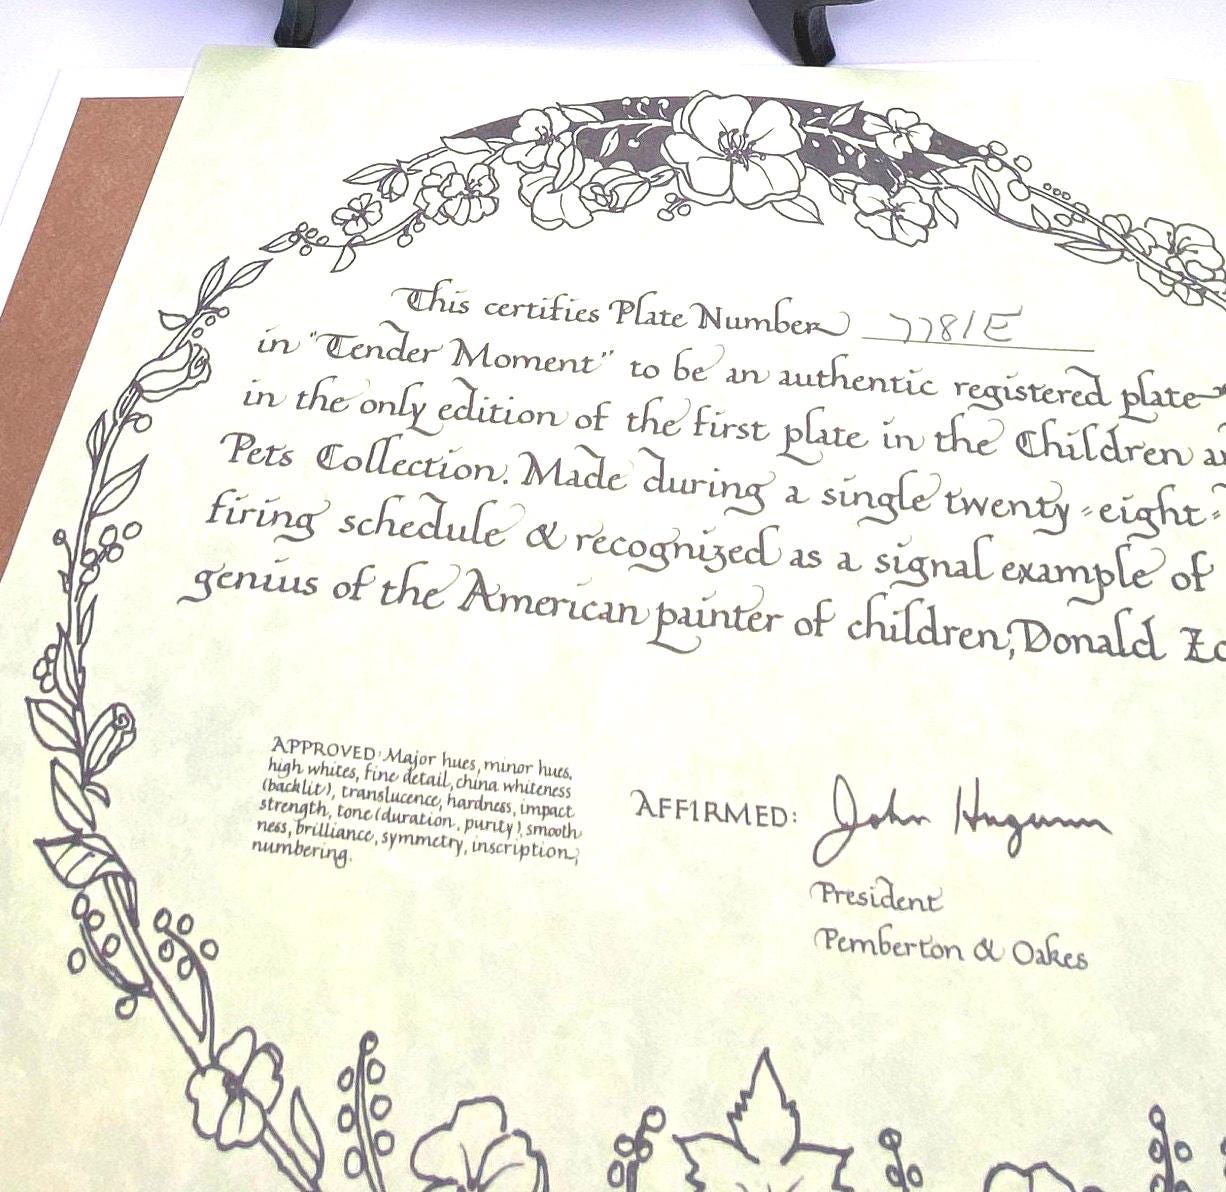 This certifies Plate Number 7781E
in "Tender Moment" to be an authentic registered plate
in the only edition of the first plate in the Children
Pets Collection. Made during a single twenty-eight-
firing schedule & recognized as a signal example of
genius of the American painter of children, Donald
APPROVED: Major hues, minor hues,
high whites, fine detail, china whiteness
(backlit), translucence, hardness, impact
strength, tone (duration, purity), smooth
ness, brilliance, symmetry, inscription,
numbering.
AFFIRMED: John Hugunin
President
Pemberton & Oakes